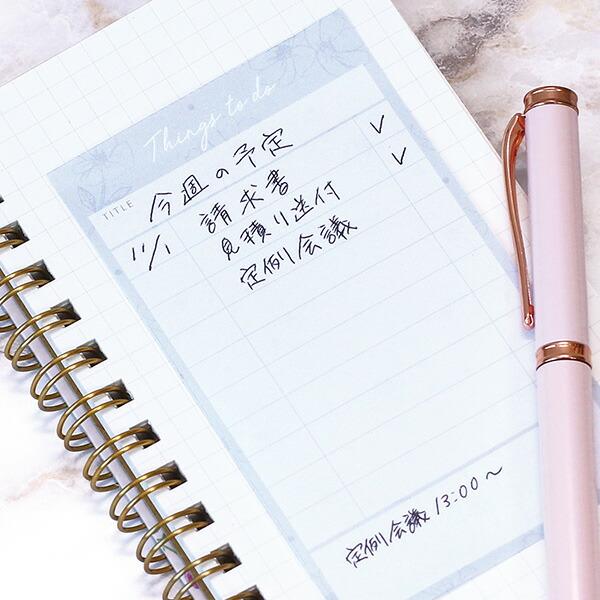 Things to do
TITLE 今週の予定
11/1 請求書 ✓
見積り送付 ✓
定例会議
定例会議 13:00〜